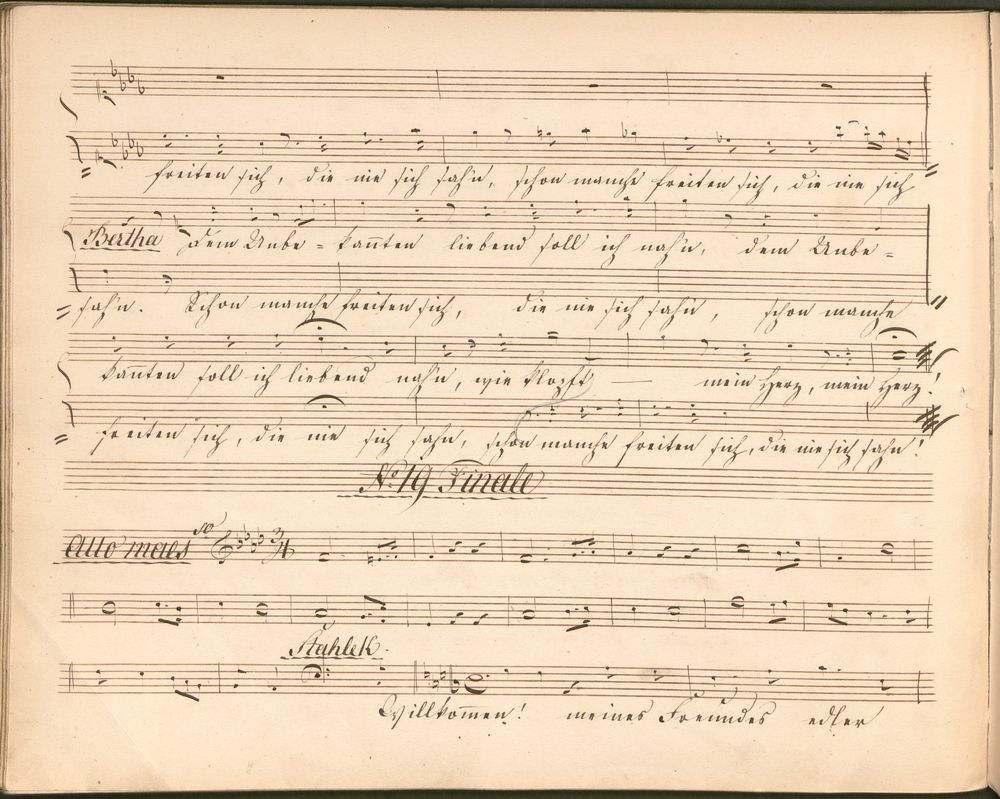 freiten sich, die nie sich sah'n, schon manche freiten sich, die nie sich
Bertha Dem Unbe - kan̄ten liebend soll ich nah'n, dem Unbe =
= sah'n. Schon manche freiten sich, die nie sich sah'n, schon manche
kan̄ten soll ich liebend nah'n, wie klopft — mein Herz, mein Herz!
= freiten sich, die nie sich sah'n, schon manche freiten sich, die nie sich sah'n!
No. 19 Finale
Allo maesso 3/4
Stahlek.
Willkom̄en! meines Freundes edler